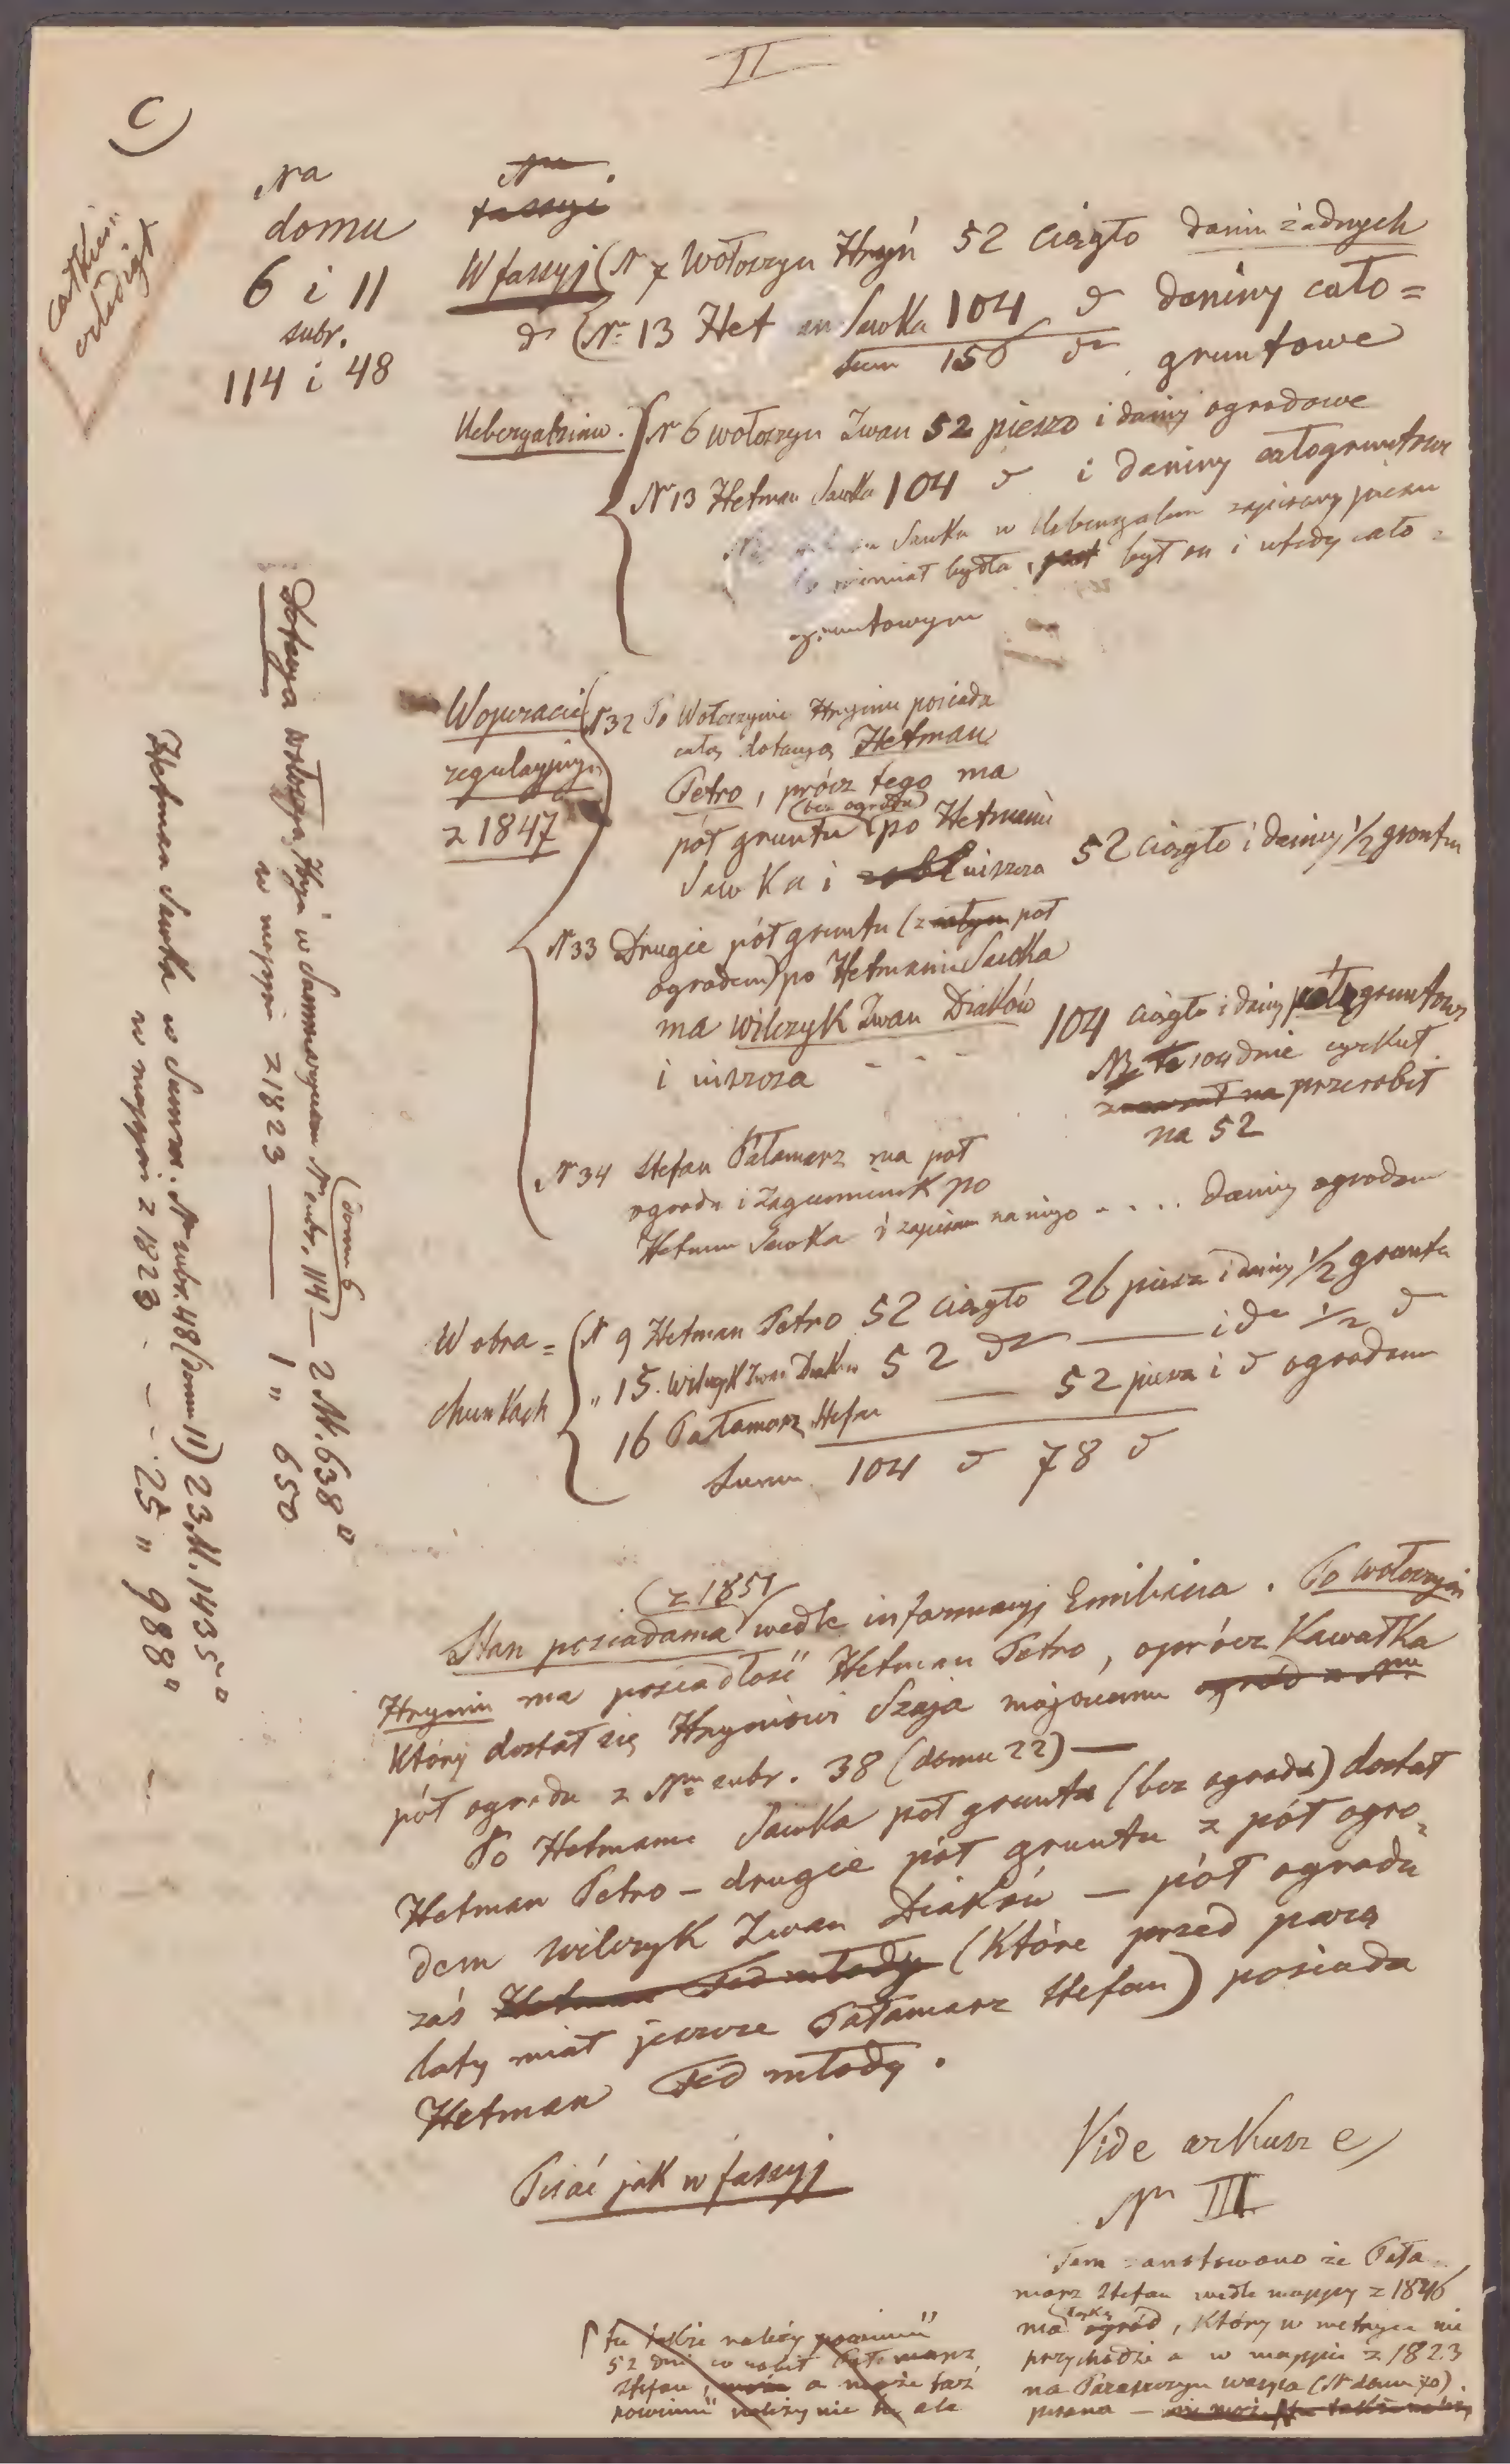 II
C)
Na
domu
6 i 11
subr.
114 i 48
W fassyj (N 7 Wołoszyn Hryń 52 ciągło danin żadnych
dº (Nº 13 Het an Sawka 104 dº daniny cało=
sum 156 dº gruntowe
N 6 wołoszyn Iwan 52 pieszo i daniny ogrodowe
N 13 Hetman Sawka 104 dº i daniny całogruntowe
Sawka w zapisany pieszo
niemiał bydła, był on i wtedy cało=
gruntowym
W operacie
regulacyjnym
z 1847
N 32 Po Wołoszynie Hryniu posiada
całą dotacyą Hetman
Petro, prócz tego ma
(bez ogrodu)
pół gruntu po Hetmanie
Sawka i uiszcza 52 ciągło i daniny 1/2 gruntu
N 33 Drugie pół gruntu (z całym pół
ogrodem) po Hetmanie Sawka
ma wilczyk Iwan Diaków
i uiszcza - - - 104 ciągło i daniny gruntowe
NB te 104 dnie cyrkuł
na przerobił
na 52
N 34 Stefan Pałamarz ma pół
ogrodu i zagumienek po
Hetman Sawka i zapisano na niego - . . . daniny ogrodowe
W obra=
chunkach
N 9 Hetman Petro 52 ciągło 26 piesze i daniny 1/2 gruntu
" 15. Wilczyk Iwan Diaków 52 dº — i dº 1/2 dº
16 Pałamarz Stefan — 52 piesze i dº ogrodowe
Summ 104 dº 78 dº
Dotacya wołoszyn Hryń w Summaryuszu Nr subr. 114 (domu 6) — 2 M. 638 □
w mappie z 1823 — 1 " 650
Hetman Sawka w Summ. Nr subr. 48 (domu 11) 23 M. 1435 □
w mappie z 1823 . - - . 25 " 988 □
(z 1851)
Stan posiadania wedle informacyj Emiliana. Po wołoszyn
Hryniu ma posiadłość Hetman Petro, oprócz kawałka
Który dostał się Hryniowi Szaja mającemu ogród z Nru
pół ogrodu z Nru subr. 38 (domu 22) —
Po Hetmanie Sawka pół gruntu (bez ogrodu) dostał
Hetman Petro – drugie pół gruntu z pół ogro=
dem wilczyk Iwan Diaków — pół ogrodu
zaś Hetman Fed młody (które przed parą
laty miał jeszcze Pałamarz Stefan) posiada
Hetman Fed młody.
Pisać jak w fassyj
Vide arkusz e)
Nr III
Tam zanotowano że Pała=
marz Stefan wedle mappy z 1846
ma ogród, który w metryce nie
przychodzi a w mappie z 1823
na wasyla (N domu 70).
pisana —
tu należy powinn
52 dni co robił Pałamarz
Stefan, a może też
powinn należy nie ale